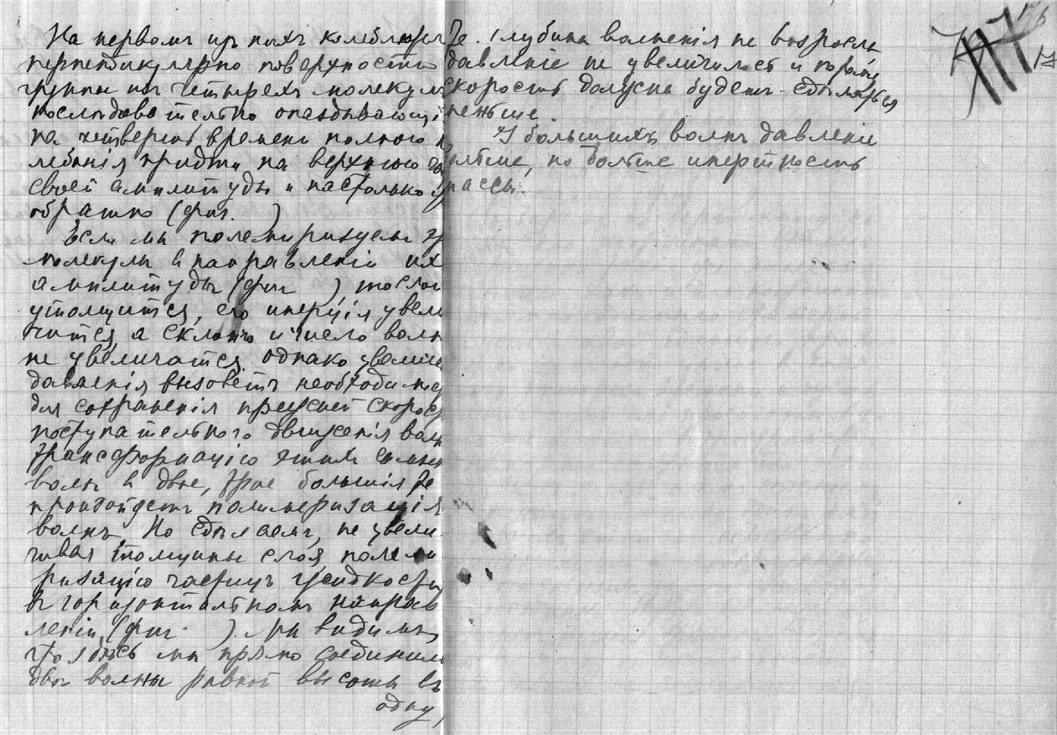 На первомъ изъ нихъ колеблющ
перпендикулярно поверхности
группы изъ четырехъ молекулъ
последовательно опаздывающі
на четверть времени полного к
лебанія придти на верхнюю
своей амплитуды и настолько
обратно (фиг. )
Если мы полемиризуемъ
молекулы в направленіи ихъ
амплитуды (фиг ) то слой
утолщится, его инерція увели
чится, а склонъ и число волнъ
не увеличатся однако увеличе
давленія вызоветъ необходиму
для сохраненія прежней скорос
поступательного движенія волн
трансформацію
волнъ в двое, трое большія
произойдетъ полимеризація
волнъ. Но сделаемъ, не увели
чивая толщины слоя, полеме
ризацію частицъ жидкости
в горизонтальномъ направ
леніи (фиг. ) Мы видимъ,
что здесь мы прямо соединили
две волны равной высоты въ
одну,
Глубина волненія не возросла
давленіе не увеличилось и
скорость должна будетъ сделаться
меньше.
У большихъ волнъ давленіе
больше, но больше инертность
массы.